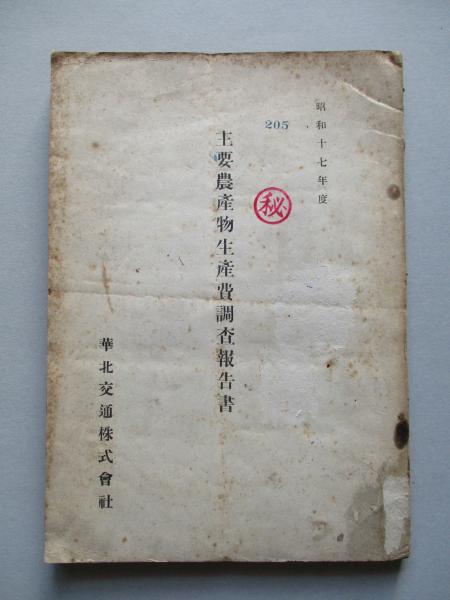 昭和十七年度
205
㊙
主要農產物生產費調査報告書
華北交通株式會社